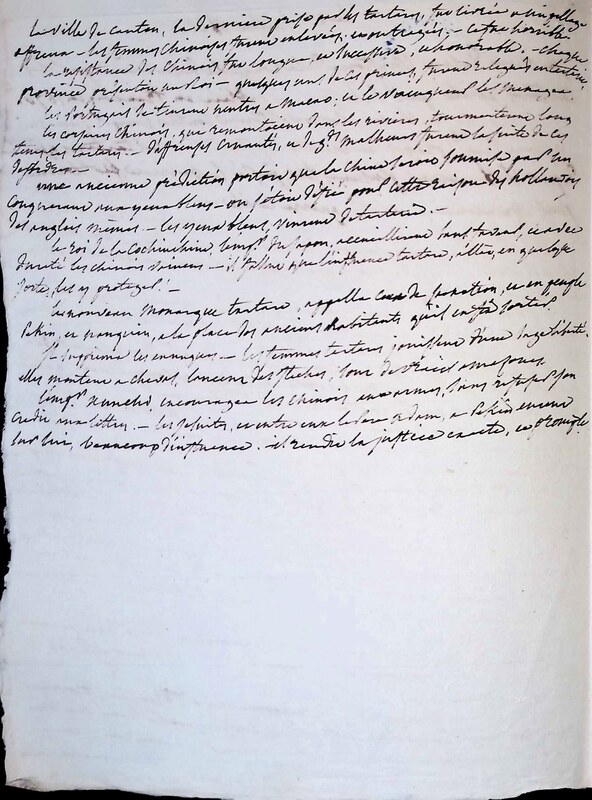 la ville de canton, la derniere prise par les tartares, fut livrée a un pillage
affreux - les femmes chinoises furent enlevées, et outragées. - ce fut horrible.
la resistance des chinois fut longue, et successive, et honorable. - chaque
province se fit un Roi - quelques uns de ces princes, furent relegués en tartarie.
les portugais se tinrent neutres a macao. et les vainqueurs les menagea
les corsaires chinois, qui remontoient dans les rivieres, tourmenterent long
tems les tartares - d'affreuses cruautés, et de gds malheurs furent la suite de ces
une ancienne prédiction portoit que la chine seroit soumise par un
conquerant aux yeux bleus - on s'étoit défié pour cette raison des hollandois
des anglois mêmes - les yeux bleus, vinrent de tartarie. -
le roi de la cochinchine, l'empr du japon, accueillirent sans travail, et avec
dureté les chinois - il fallut que l'influence tartare, allat, en quelque
sorte, les y proteger. -
le nouveau monarque tartare, appella de sa nation, et en peupla
Pekin, et nanquin, a la place des anciens habitants qu'il en fit sortir.
il supprima les eunuques. - les femmes tartares jouissent d'une sage liberté.
elles montent a cheval, lancent des fleches, sont de vraies amazones.
l'empr xunchi, encouragea les chinois aux armes, sans refuser son
credit aux lettres. - les jesuites, et entre eux le pere adam, a Pékin eurent
sur lui, beaucoup d'influence. - il rendit la justice exacte, et prompte